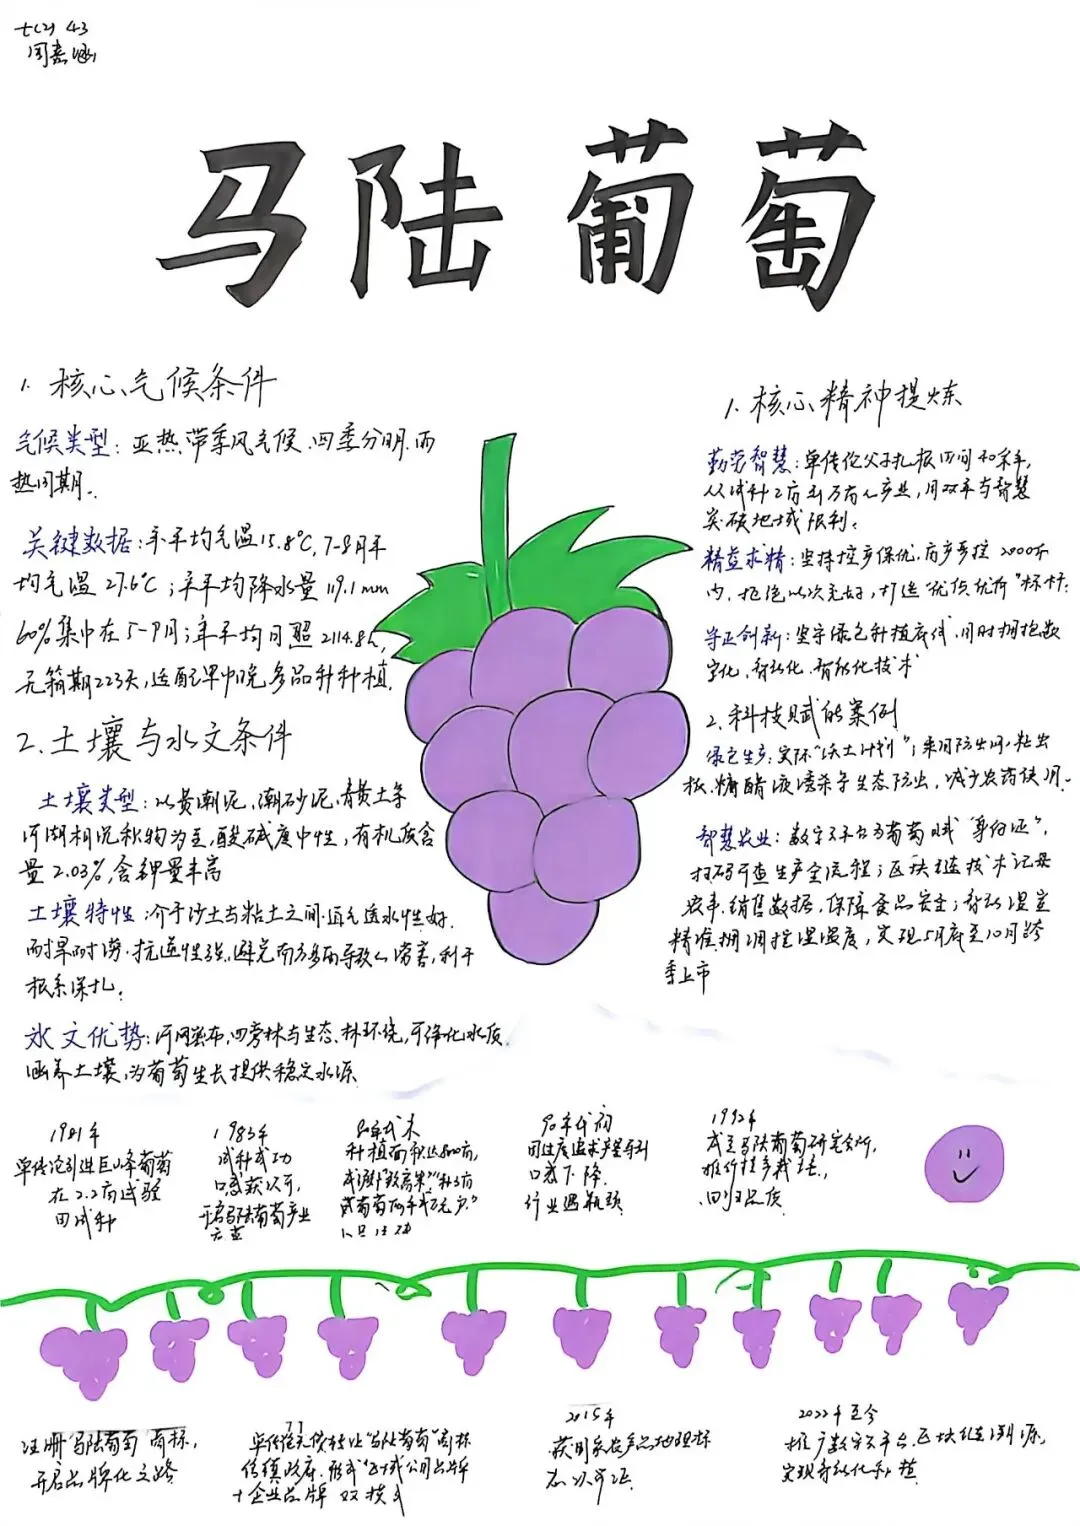 七(2) 43
周嘉涵
马陆葡萄
1. 核心气候条件
气候类型: 亚热带季风气候.四季分明.雨
热同期.
关键数据: 年平均气温15.8℃, 7-8月平
均气温 27.6℃; 年平均降水量 119.1 mm
60%集中在5-9月; 年平均日照 2114.8h,
无霜期223天, 适配早中晚多品种种植.
2. 土壤与水文条件
土壤类型: 以黄潮泥, 潮砂泥, 青黄土等
河湖相沉积物为主, 酸碱度中性, 有机质含
量 2.03%, 含钾量丰高
土壤特性: 介于沙土与粘土之间.通气透水性好.
耐旱耐涝.抗逆性强, 避免南方多雨导致的涝害, 利于
根系深扎.
水文优势: 河网密布, 四旁林与生态林环绕, 可净化水质
涵养土壤, 为葡萄生长提供稳定水源
1. 核心精神提炼
勤劳智慧: 单传伦父子扎根田间40余年,
从试种2亩到万亩产业, 用双手与智慧
突破地域限制.
精益求精: 坚持控产保优, 亩产严控 2000斤
内, 拒绝以次充好, 打造"优质优价"标杆.
守正创新: 坚守绿色种植底线, 同时拥抱数
字化, 智能化技术
2. 科技赋能案例
绿色生产: 实际"沃土计划"; 采用防虫网, 粘虫
板, 糖醋液诱杀等生态防虫, 减少农药使用.
智慧农业: 数字平台为葡萄赋"身份证",
扫码可查生产全流程; 区块链技术记录
农事, 销售数据, 保障食品安全; 智能温室
精准调控温湿度, 实现5月底至10月跨
季上市
1981年
单传伦引进巨峰葡萄
在2.2亩试验
田试种
1983年
试种成功
口感获认可,
开启马陆葡萄产业
80年代末
种植面积达800亩,
90年代初
因过度追求产量导致
口感下降.
行业遇瓶颈
1992年
成立马陆葡萄研究所,
推行控产栽培,
回归品质
注册"马陆葡萄"商标,
开启品牌化之路
单传伦无偿转让"马陆葡萄"商标
给镇政府.形成"区域公用品牌
+企业品牌"双模式
2015年
获国家农产品地理标
志认证
2022年至今
推广数字平台、区块链溯源,
实现智能化种植